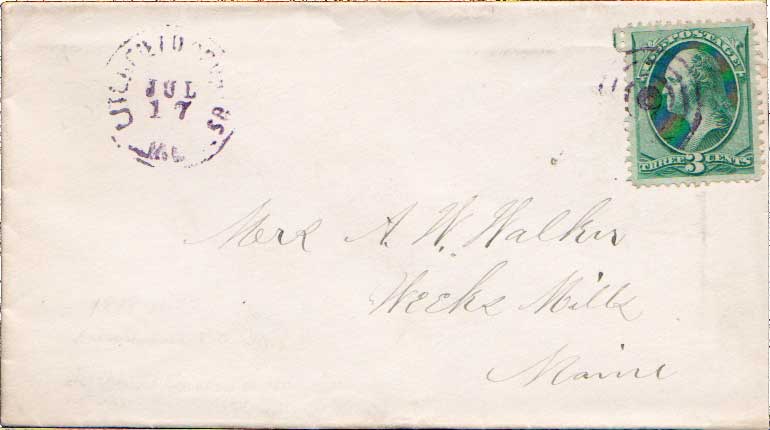 JUL
17
Me
U.S. POSTAGE
THREE 3 CENTS
Mrs A. W. Walker
Weeks Mills
Maine